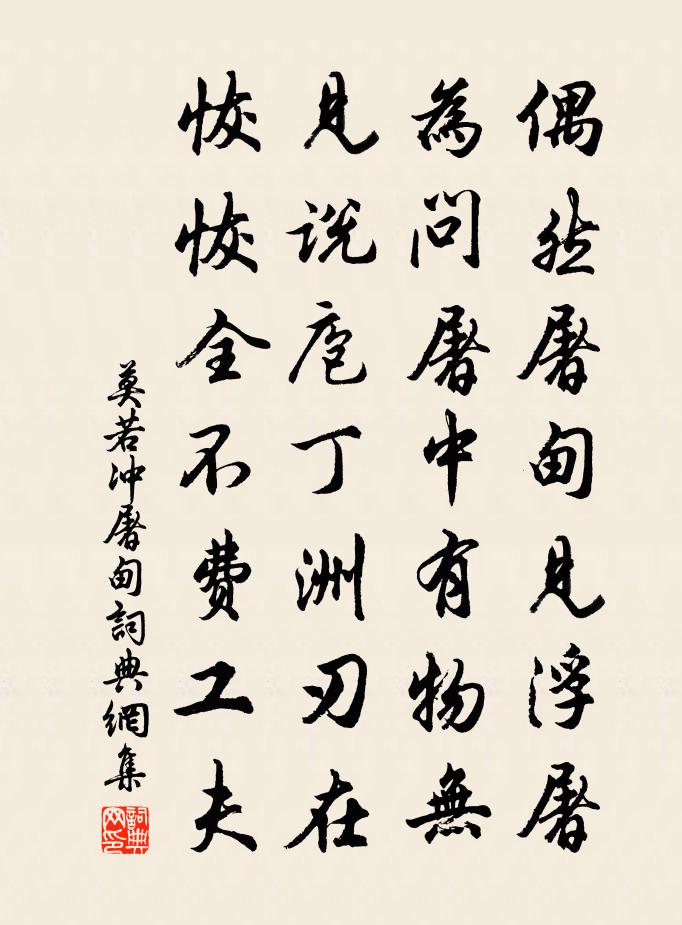 偶然屠甸見浮屠
為問屠中有物無
見說庖丁洲刃在
恢恢全不費工夫
莫若沖屠甸詞典網集
詞典網印